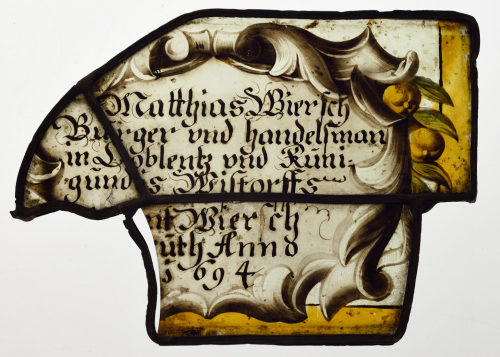 Matthias Wiersch
Burger vnd handelsman
in Coblentz vnd Kuni-
gundis Meistorffs
at Wiersch
uth Anno
1694